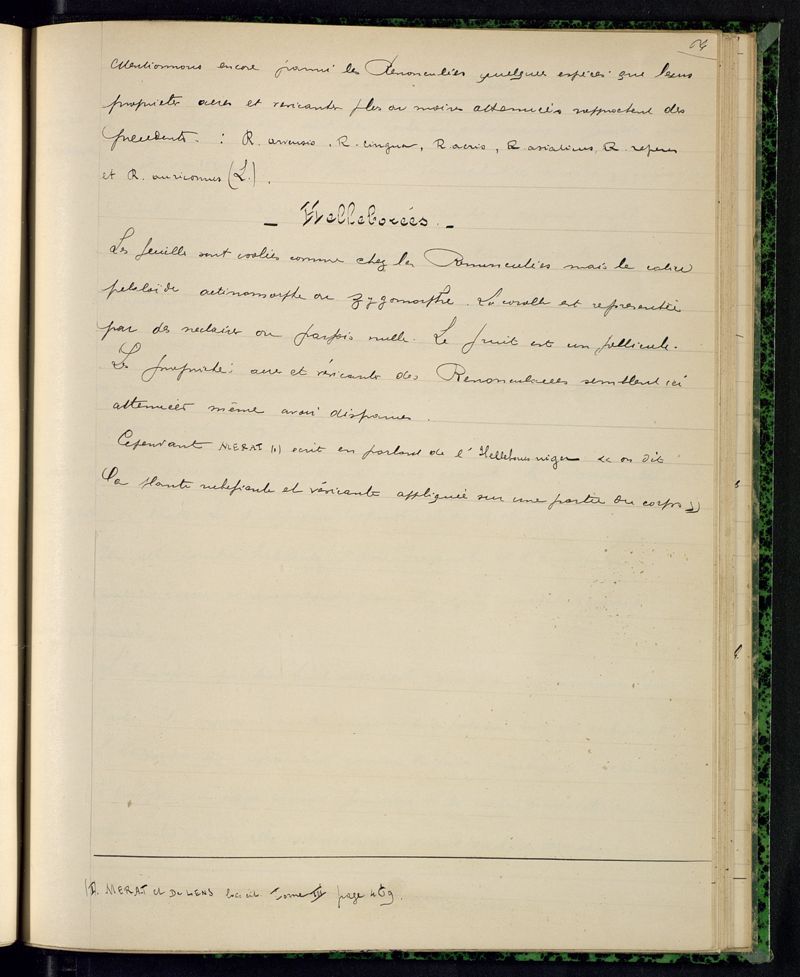 Mentionnons encore parmi les Renonculées quelques espèces que leurs
propriétés acres et vésicantes plus ou moins attenuées rapprochent des
précédents : R. arvensis, R. lingua, R. acris, R. asiaticus, R. repens
et R. auricomus (L.).
- Helleborées. -
Les feuilles sont isolées comme chez les Renonculées mais le calice
petaloïde actinomorphe ou zygomorphe. La corolle est representée
par des nectaires ou parfois nulle. Le fruit est un follicule.
Les propriétés acres et vésicantes des Renonculacées semblent ici
attenuées même avoir disparues.
Cependant MERAT (1) ecrit en parlant de l'Helleborus niger « on dit
la plante rubefiante et vésicante appliquée sur une partie du corps »
(1). MERAT et De LENS loc. cit. Tome III page 469.